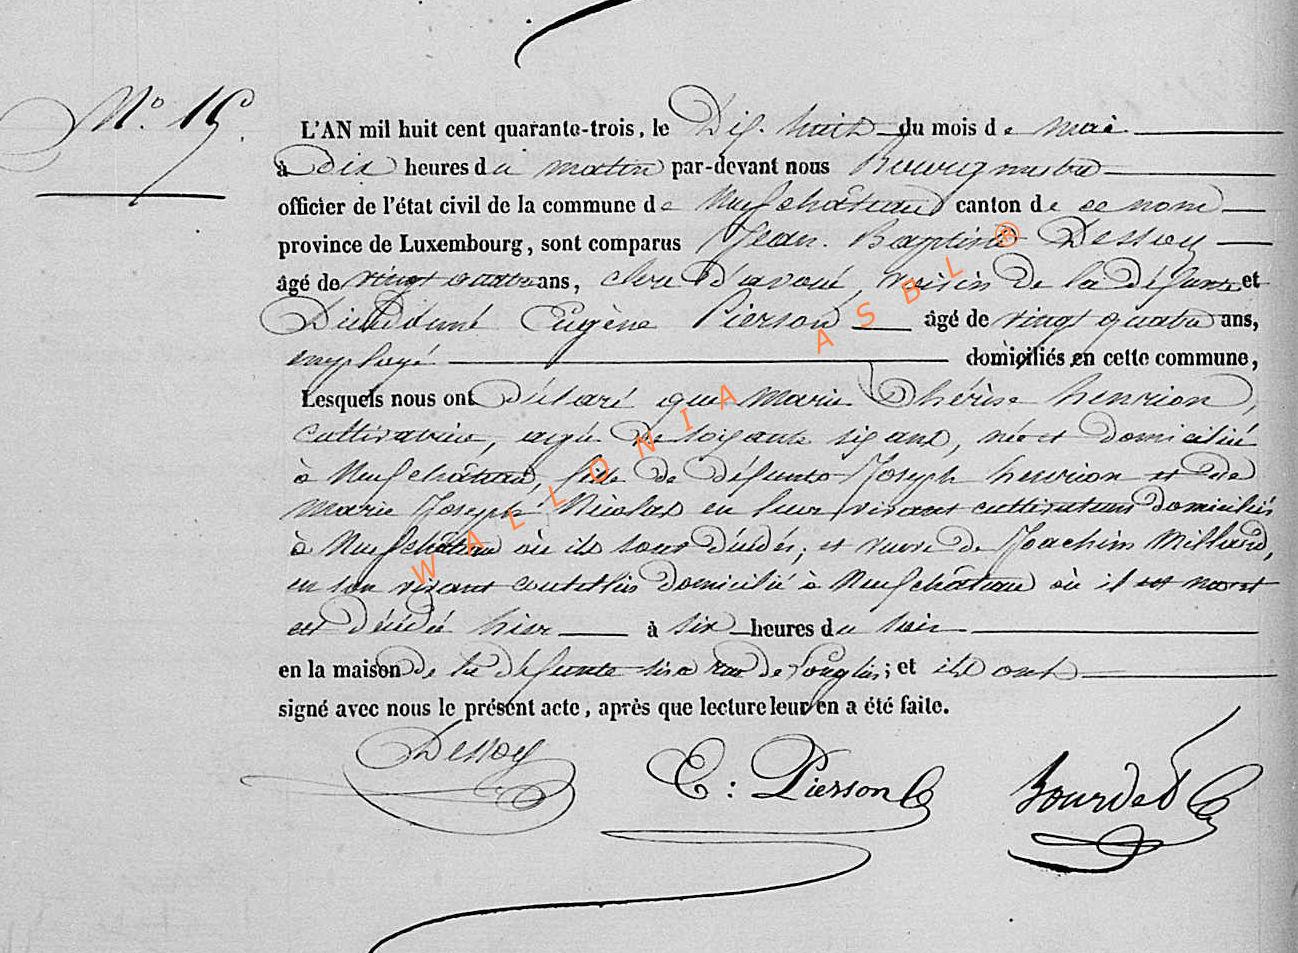 N.° 15.
L'AN mil huit cent quarante-trois, le Dix-huit du mois de mai
à dix heures du matin par-devant nous Bourgmestre
officier de l'état civil de la commune de Neufchâteau canton de ce nom
province de Luxembourg, sont comparus Jean-Baptiste Dessoy
âgé de vingt quatre ans, clerc d'avoué, voisin de la défunte et
Dieudonné Eugène Pierson âgé de vingt quatre ans,
employé domiciliés en cette commune,
Lesquels nous ont déclaré que Marie Thérèse henrion,
cultivatrice, agée de soixante six ans, née et domiciliée
à Neufchâteau, fille de défunts Joseph henrion et de
Marie Joseph Nicolas en leur vivant cultivateurs domiciliés
à Neufchâteau où ils sont décédés; et veuve de Joachim Milliard,
en son vivant domicilié à Neufchâteau où il est mort
est décédée hier à six heures du soir
en la maison de la défunte sise rue de Longlier; et ils ont
signé avec nous le présent acte, après que lecture leur en a été faite.
Dessoy
E: Pierson
Bourdet
WALLONIA ASBL ®